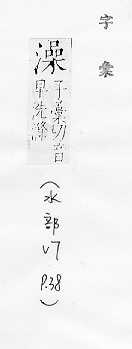 字彙
澡
子稾切音
早洗滌
(水部
V7
P.38)